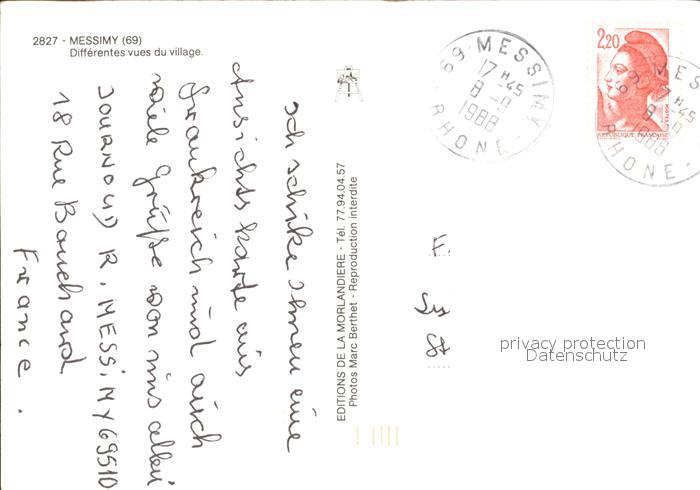 2827 - MESSIMY (69)
Différentes vues du village.
Ich schike Ihnen eine
Ansichts karte aus
Frankreich und auch
viele Grüße von uns allen
JOURNOUD R. MESSiMY 69510
18 Rue Bouchard
France.
EDITIONS DE LA MORLANDIERE - Tél. 77.94.04.57
Photos Marc Berthet - Reproduction interdite
69 - MESSIMY
17 H 45
1988
RHONE -
2,20
POSTES
REPUBLIQUE FRANÇAISE
69 - MESSIMY
17 H 45
1988
RHONE -
F.
privacy protection
Datenschutz